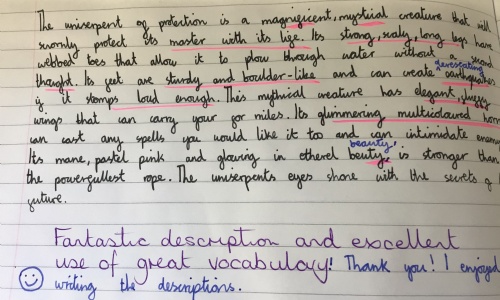 The uniserpent of protection is a magnificent, mystical creature that will
swornly protect its master with its life. Its strong, scaly, long legs have
webbed toes that allow it to plow through water without a second
devestating
thought. Its feet are sturdy and boulder-like and can create earthquakes
if it stomps loud enough. This mythical creature has elegant,
wings that can carry your for miles. Its glimmering multicoloured horn
can cast any spells you would like it too and can intimidate
beauty,
Its mane, pastel pink and glowing in ethereal beuty, is stronger than
the powerfullest rope. The uniserpents eyes shone with the secrets of
future.
Fantastic description and excellent
use of great vocabulary! Thank you! I enjoyed
writing the descriptions.